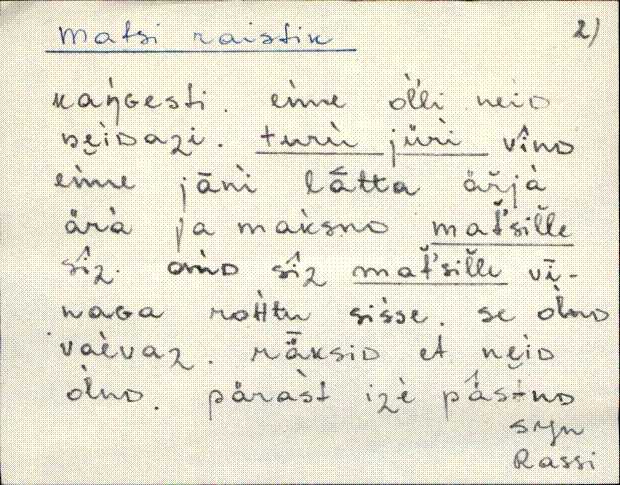 Matsi raistik 2)
kaŋGesti. eìne ò̄lli neiD
neiDazi. turù jüri vînD
eìne jāni lā́tta ärjà
ärà ja maksnD mat'sille
sîz. anD sîz mat'sille vī-
naGa rohtu sisse. se òlnD
vaèvaz. rä̀ksiD et neiD
òlnD. pärast izè pâstnD
syn
Rassi